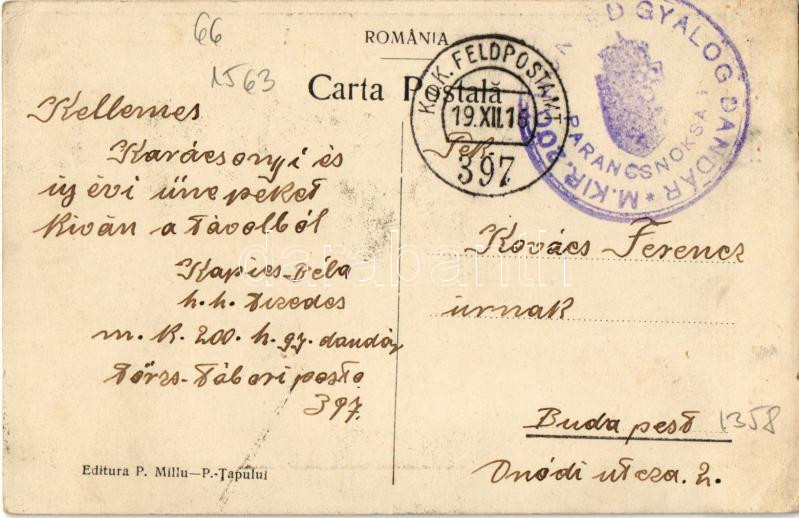 66
1563
ROMÂNIA
Carta Poștală
K.u.K. FELDPOSTAMT
19.XII.16
397
GYALOG DANDÁR * M. KIR. 200
PARANCSNOKSÁG
Kellemes
Karácsonyi és
új évi ünepeket
kiván a távolból
Kapics Béla
h.h. tizedes
m. k. 200. h. gy. dandár
törzs-tábori posta
397.
Tek.
Kovács Ferencz
urnak
Budapest
Onódi utcza. 2.
1358
Editura P. Millu—P.-Țapului
darabanth